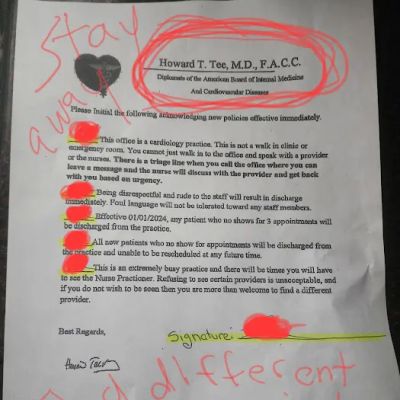 Stay
away
Howard T. Tee, M.D., F.A.C.C.
Diplomate of the American Board of Internal Medicine
And Cardiovascular Diseases
Please Initial the following acknowledging new policies effective immediately.
This office is a cardiology practice. This is not a walk in clinic or
emergency room. You cannot just walk in to the office and speak with a provider
or the nurses. There is a triage line when you call the office where you can
leave a message and the nurse will discuss with the provider and get back
with you based on urgency.
Being disrespectful and rude to the staff will result in discharge
immediately. Foul language will not be tolerated toward any staff members.
Effective 01/01/2024, any patient who no shows for 3 appointments will
be discharged from the practice.
All new patients who no show for appointments will be discharged from
the practice and unable to be rescheduled at any future time.
This is an extremely busy practice and there will be times you will have
to see the Nurse Practitioner. Refusing to see certain providers is unacceptable, and
if you do not wish to be seen then you are more than welcome to find a different
provider.
Best Regards,
Signature:
different